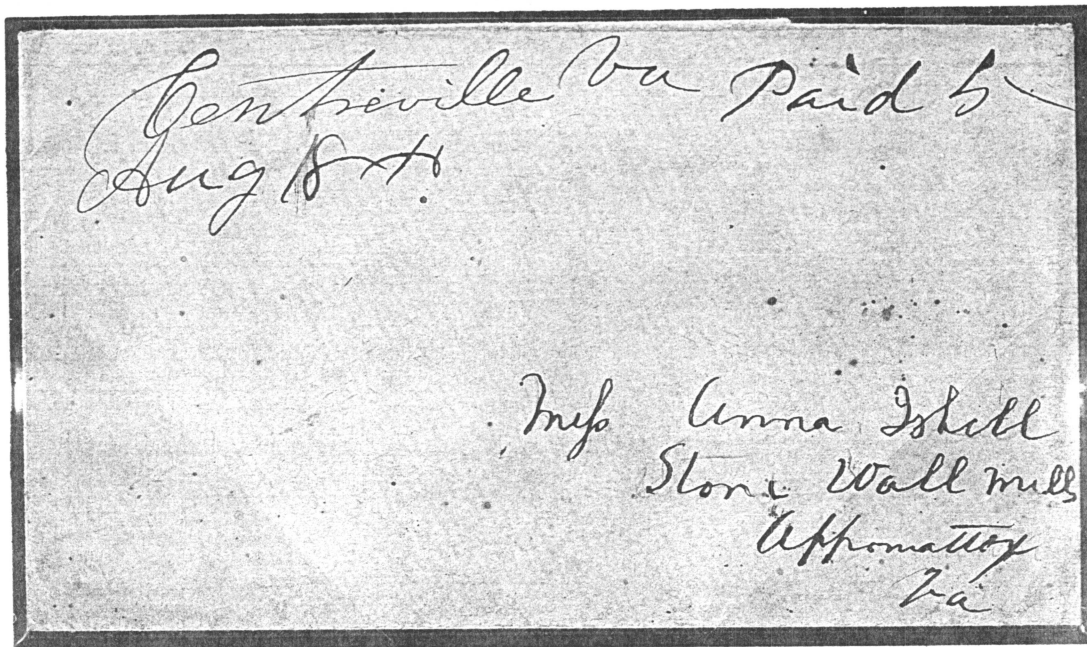 Centreville Va Paid 5
Aug 18th
Miss Anna Isbell
Stone Wall Mills
Appomattox
Va